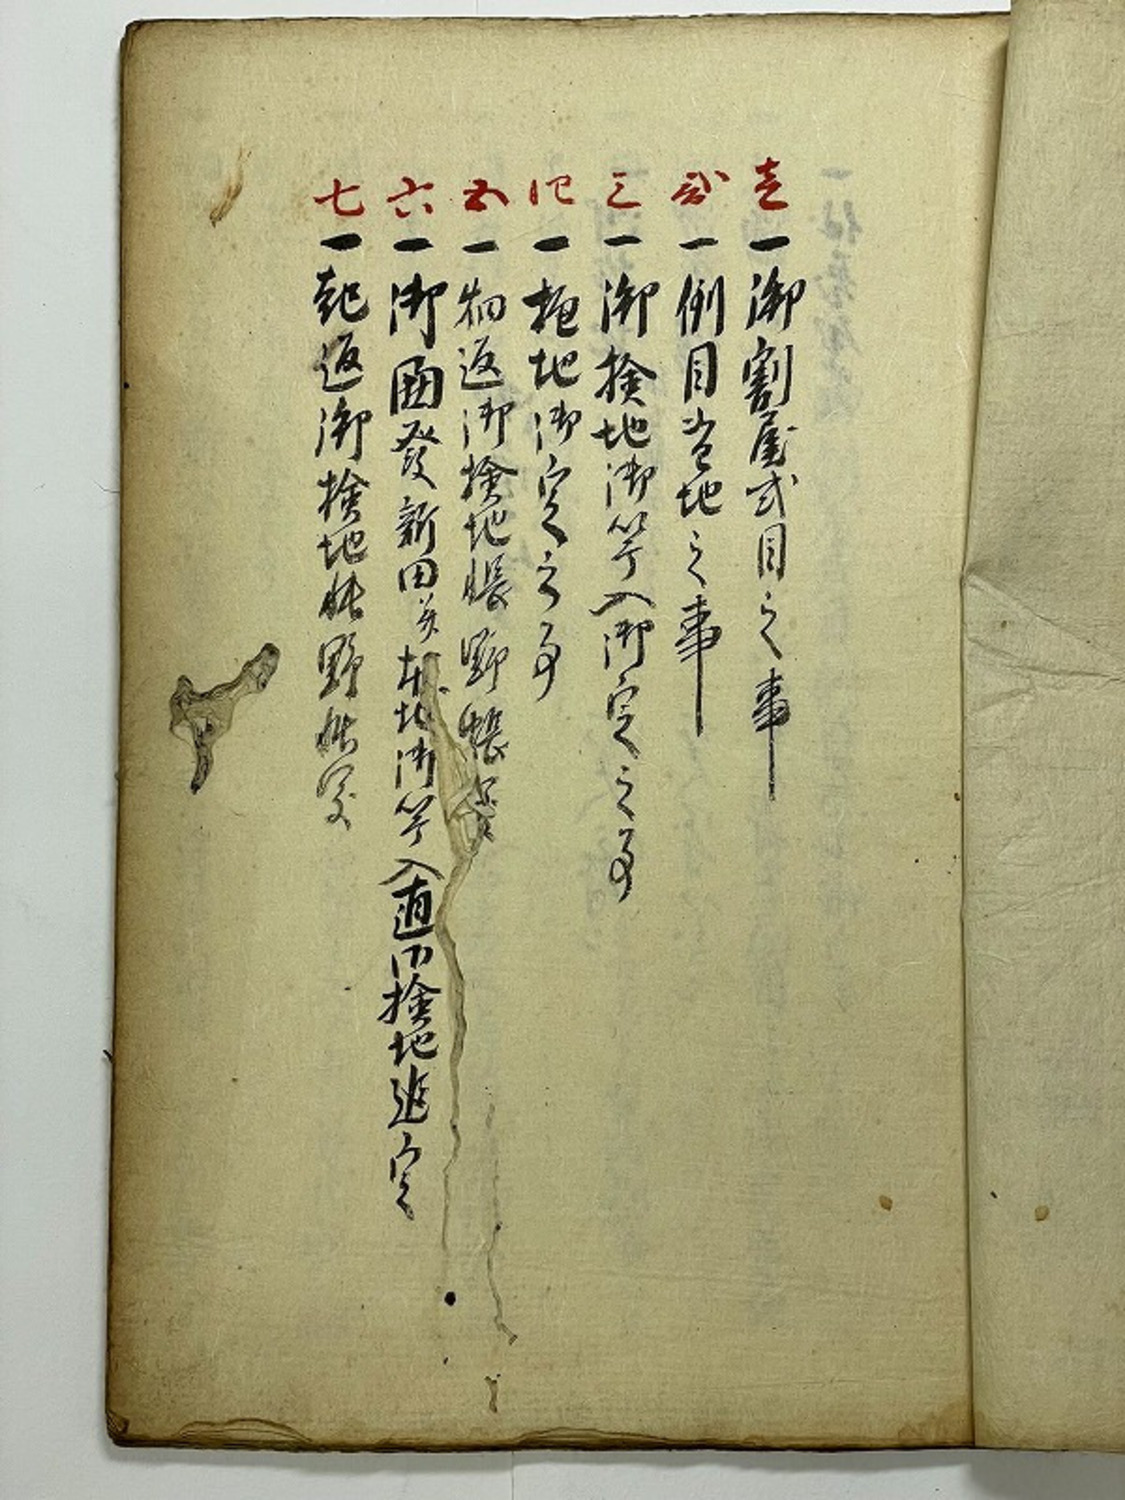 壱一御割屋式目之事
弐一例目当地之事
三一御検地御竿入御定之事
四一地御定之事
五一物返御検地帳野帳
六一御開發新田并地御竿入直御検地定
七一起返御検地帳野帳